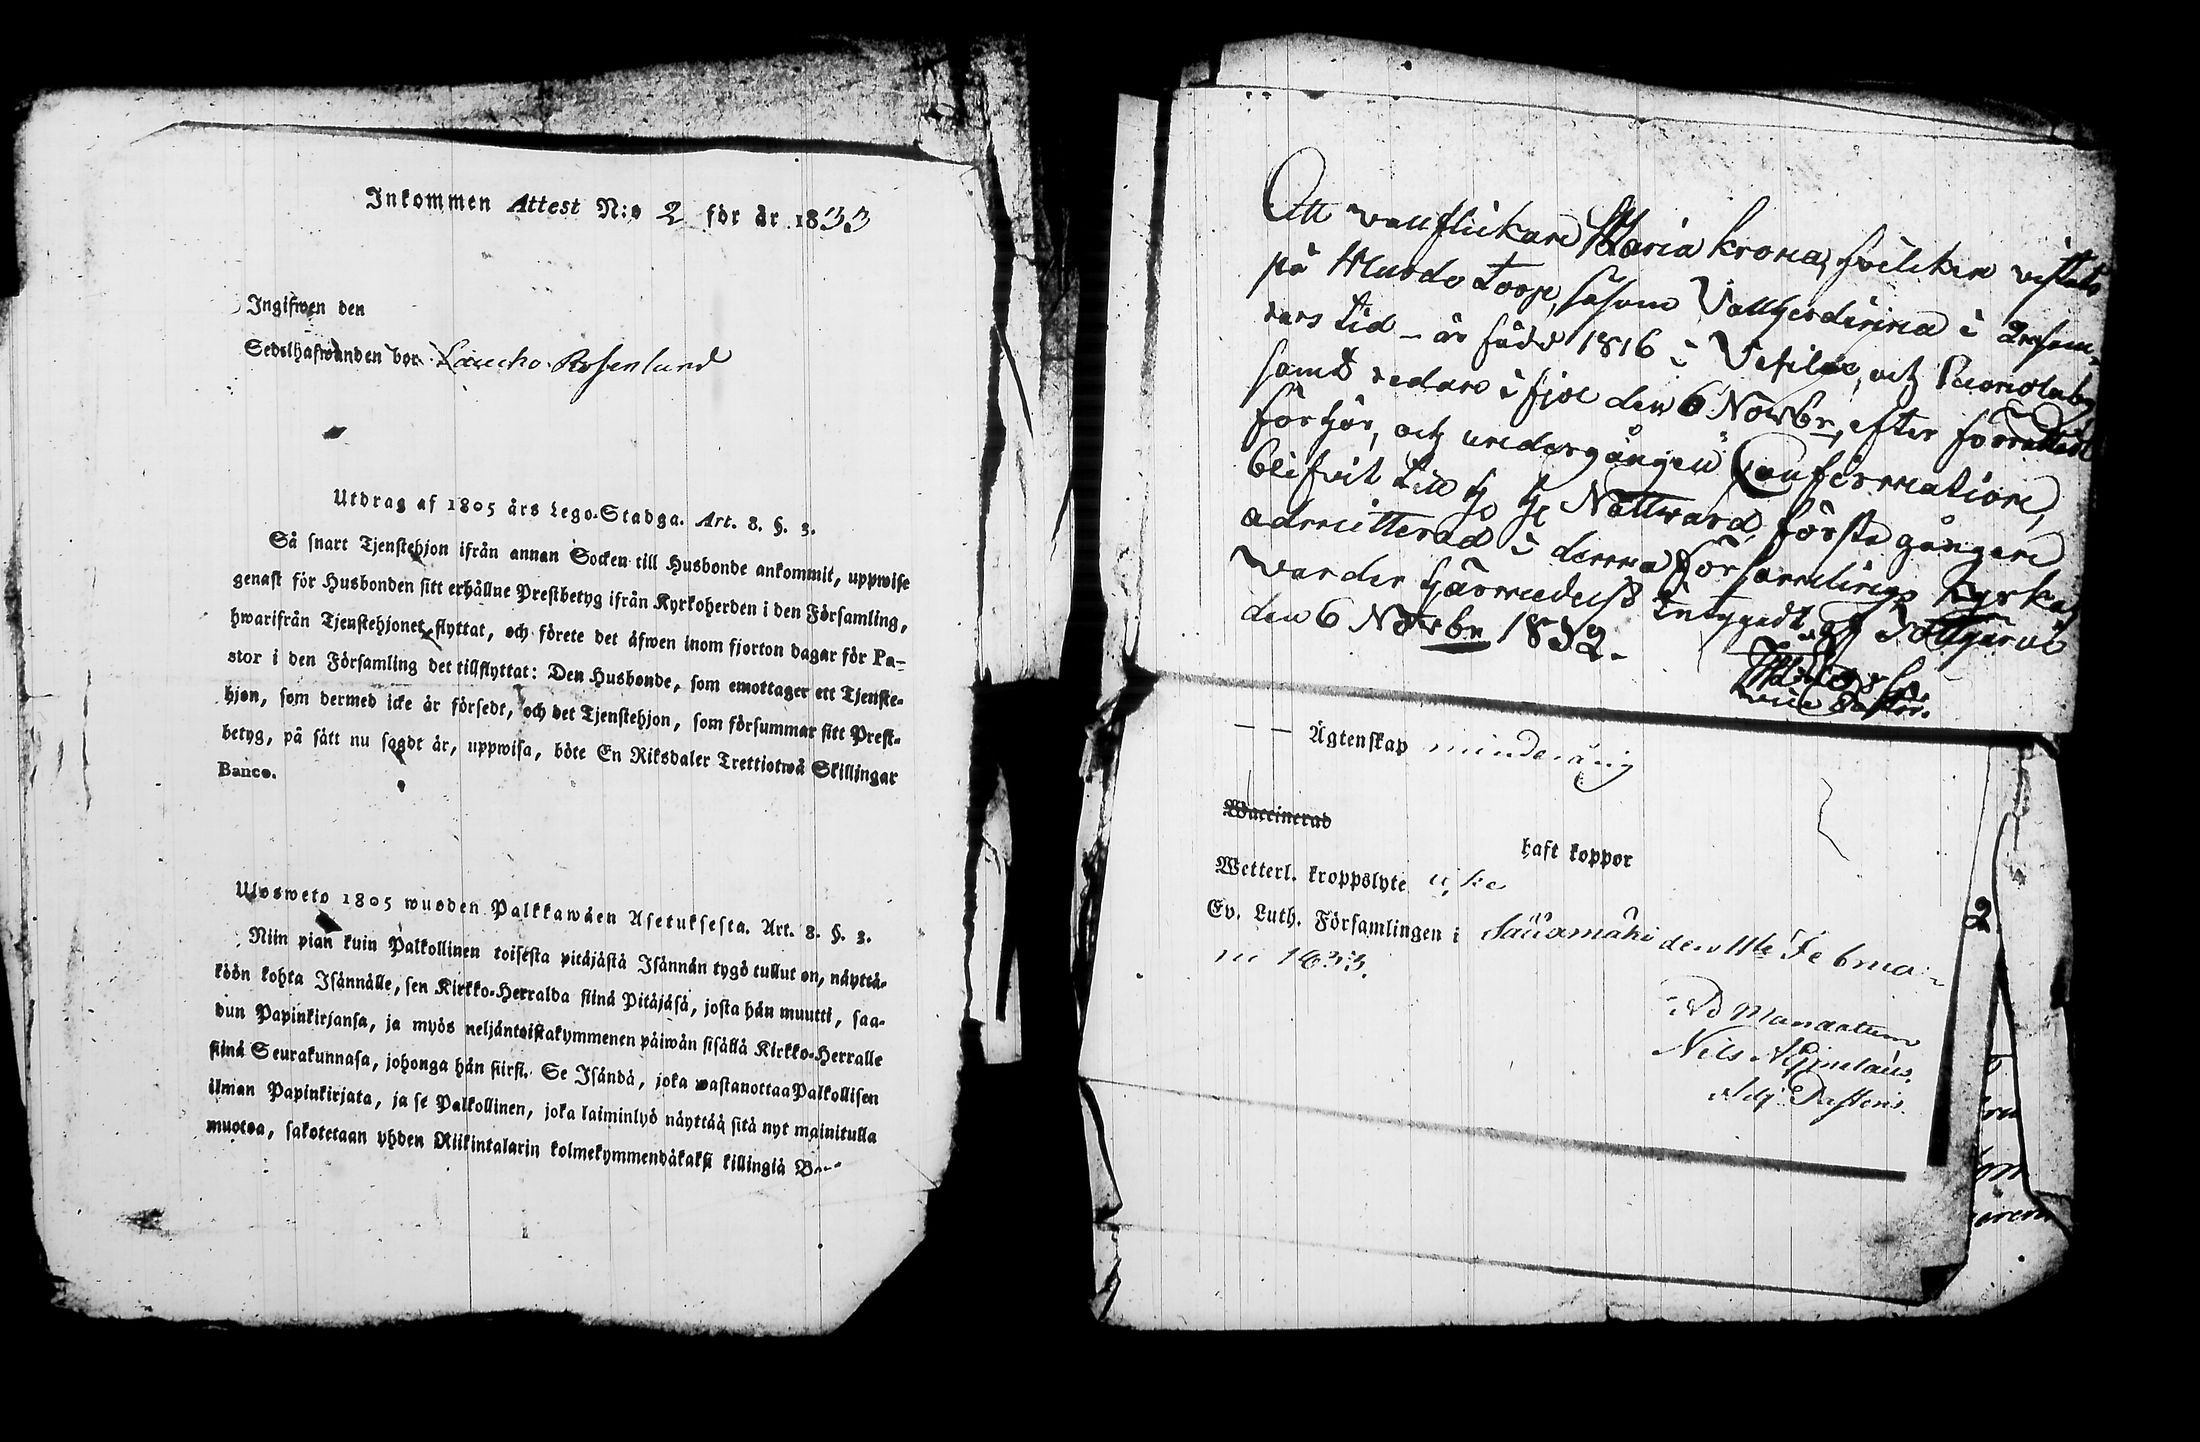 Inkommen Attest N:o 2 för år 1833
Ingifwen den
Sedelhafwanden bor Laucko Rosenlund
Utdrag af 1805 års Lego-Stadga. Art. 8. §. 3.
Så snart Tjenstehjon ifrån annan Socken till Husbonde ankommit, uppwise
genast för Husbonden sitt erhållne Prestbetyg ifrån Kyrkoherden i den Församling,
hwarifrån Tjenstehjonet flyttat, och förete det äfwen inom fjorton dagar för Pa-
stor i den Församling det tillflyttat: Den Husbonde, som emottager ett Tjenste-
hjon, som dermed icke är försedt, och det Tjenstehjon, som försummar sitt Prest-
betyg, på sätt nu sagdt är, uppwisa, böte En Riksdaler Trettiotwå Skillingar
Banco.
Ulosweto 1805 wuoden Palkkawäen Asetuksesta. Art. 8. §. 3.
Niin pian kuin Palkollinen toisesta pitäjästä Isännän tygö tullut on, näyttä-
köön kohta Isännälle, sen Kirkko-Herralda siinä Pitäjäsä, josta hän muutti, saa-
dun Papinkirjansa, ja myös neljäntoistakymmenen päiwän sisällä Kirkko-Herralle
siinä Seurakunnasa, johonga hän siirsi. Se Isändä, joka wastanottaa Palkollisen
ilman Papinkirjata, ja se Palkollinen, joka laiminlyö näyttää sitä nyt mainitulla
muotoa, sakotetaan yhden Riikintalarin kolmekymmendäkaksi killingiä
Att vallflickan Maria Krona, hvilken vistats
på Torp, såsom Vallhjerdinna i 2
rars tid – är född 1816 i Vesilax, och
samt redan i fjol den 6 Novbr, efter förrättadt
förhör, och undergången Confirmation,
blifvit till H. H. Nattward första gången
admitterad i denna församlings Kyrka,
warder härmedelst intygadt af
den 6 Novbr 1832.
vice Pastor.
— — Ägtenskap minderårig
Waccinerad
haft koppor
Wetterl. kroppslyte icke
Ev. Luth. Församlingen i Sääxmäki den 11te Februa-
rii 1833.
Ad Mandatum
Nils
Adj. Pastoris
2